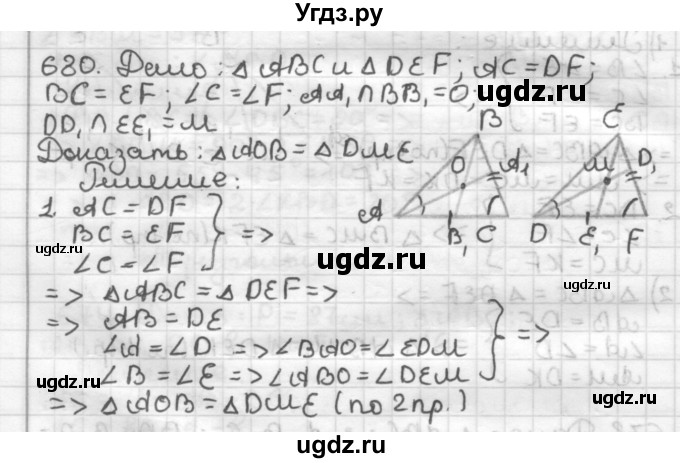 Угдз.ру
680. Дано: △ ABC и △ DEF; AC = DF;
BC = EF; ∠C = ∠F; AA₁ ∩ BB₁ = O;
DD₁ ∩ EE₁ = M
Доказать: △AOB = △DME
Решение:
1. AC = DF
BC = EF
∠C = ∠F
} =>
=> △ABC = △DEF =>
=> AB = DE
∠A = ∠D => ∠BAO = ∠EDM
∠B = ∠E => ∠ABO = ∠DEM
} =>
=> △AOB = △DME (по 2 пр.)
B
O
A₁
A
B₁
C
E
M
D₁
D
E₁
F
ugdz.ru
ugdz.ru
ugdz.ru
ugdz.ru
ugdz.ru
ugdz.ru
ugdz.ru
ugdz.ru
ugdz.ru